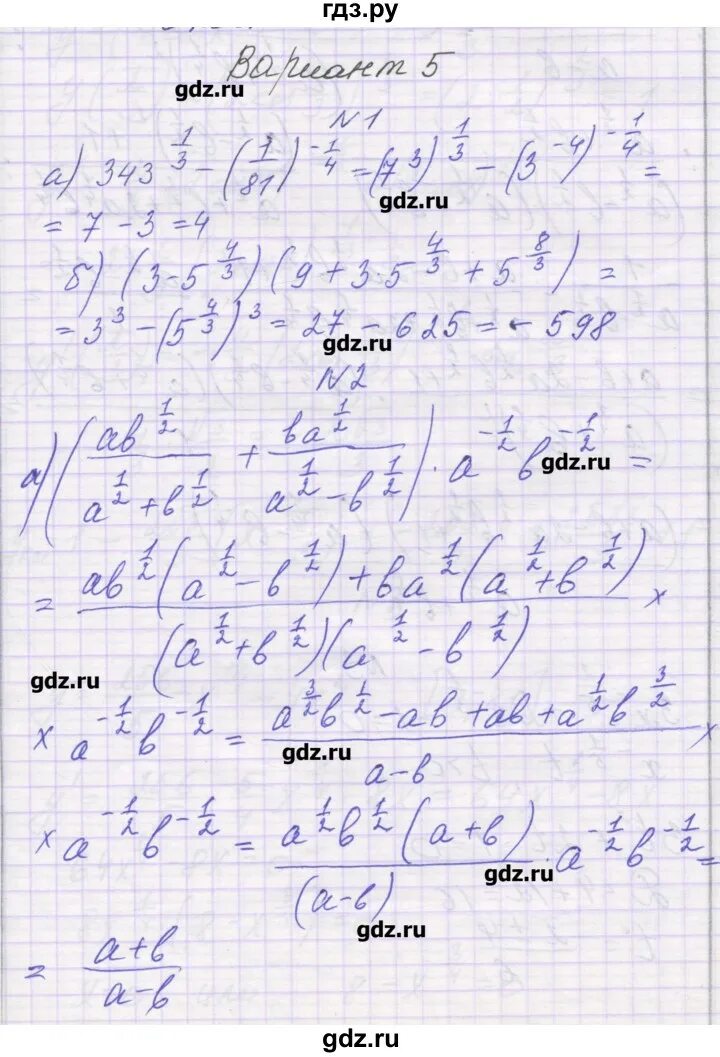 гдз.ру
Вариант 5
gdz.ru
N1
а) 343^{1/3} - (1/81)^{-1/4} = (7^3)^{1/3} - (3^{-4})^{-1/4} =
gdz.ru
= 7 - 3 = 4
б) (3 - 5^{4/3}) (9 + 3·5^{4/3} + 5^{8/3}) =
= 3^3 - (5^{4/3})^3 = 27 - 625 = -598
gdz.ru
N2
а) (ab^{1/2} / (a^{1/2} + b^{1/2}) + ba^{1/2} / (a^{1/2} - b^{1/2})) · a^{-1/2} b^{-1/2} =
gdz.ru
= (ab^{1/2} (a^{1/2} - b^{1/2}) + ba^{1/2} (a^{1/2} + b^{1/2})) / ((a^{1/2} + b^{1/2}) (a^{1/2} - b^{1/2})) ×
gdz.ru
× a^{-1/2} b^{-1/2} = (a^{3/2} b^{1/2} - ab + ab + a^{1/2} b^{3/2}) / (a - b) ×
gdz.ru
× a^{-1/2} b^{-1/2} = (a^{1/2} b^{1/2} (a + b)) / (a - b) · a^{-1/2} b^{-1/2} =
gdz.ru
gdz.ru
= (a + b) / (a - b)
gdz.ru